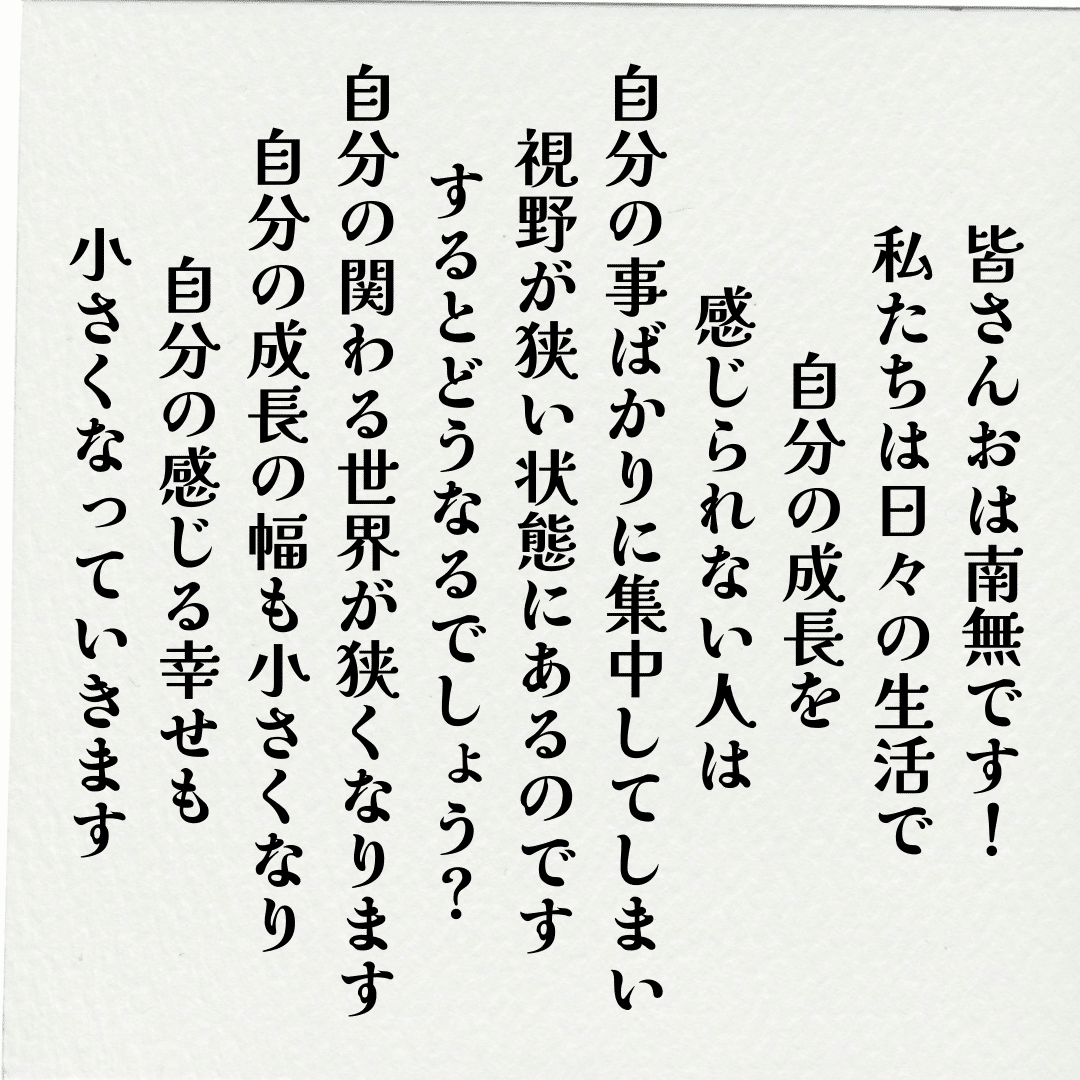 皆さんおは南無です！
私たちは日々の生活で
自分の成長を
感じられない人は
自分の事ばかりに集中してしまい
視野が狭い状態にあるのです
するとどうなるでしょう？
自分の関わる世界が狭くなります
自分の成長の幅も小さくなり
自分の感じる幸せも
小さくなっていきます